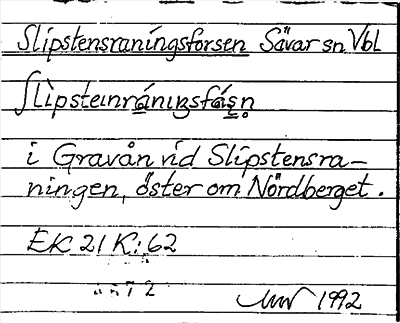 Slipstensraningsforsen Sävar sn Vbl
ʃlìpsteɩnránɩŋsfáṣṇ
i Gravån vid Slipstensra-
ningen, öster om Nördberget.
EK 21 K:62
1992